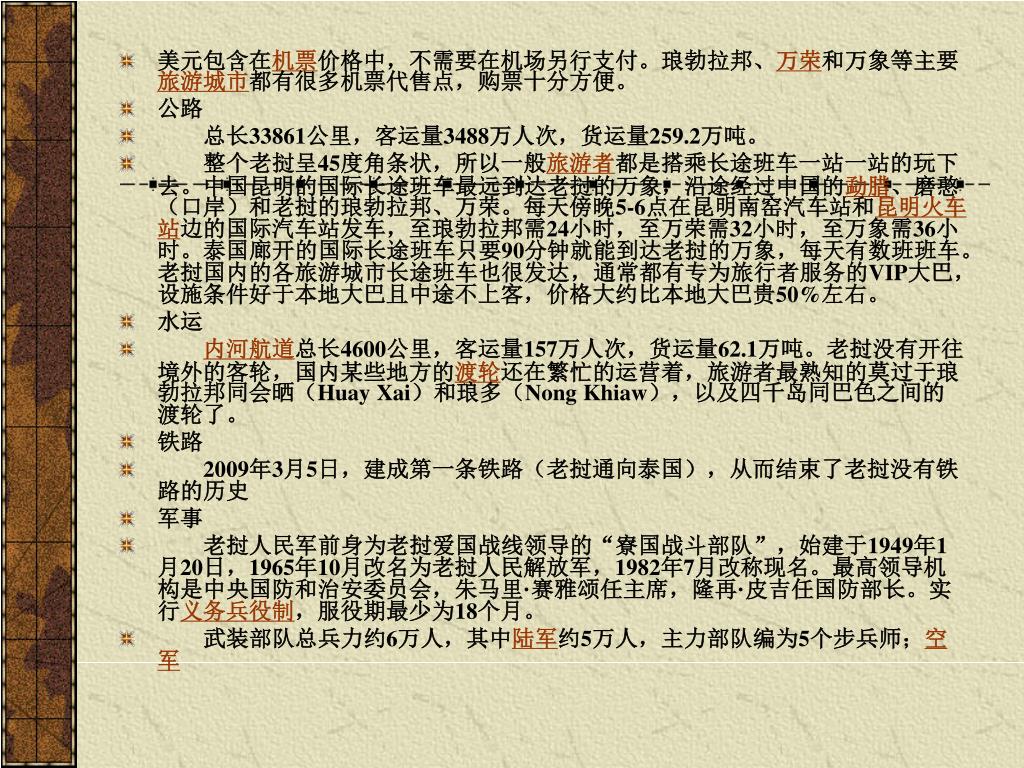 美元包含在机票价格中，不需要在机场另行支付。琅勃拉邦、万荣和万象等主要
旅游城市都有很多机票代售点，购票十分方便。
公路
总长33861公里，客运量3488万人次，货运量259.2万吨。
整个老挝呈45度角条状，所以一般旅游者都是搭乘长途班车一站一站的玩下
去。中国昆明的国际长途班车最远到达老挝的万象，沿途经过中国的勐腊、磨憨
（口岸）和老挝的琅勃拉邦、万荣。每天傍晚5-6点在昆明南窑汽车站和昆明火车
站边的国际汽车站发车，至琅勃拉邦需24小时，至万荣需32小时，至万象需36小
时。泰国廊开的国际长途班车只要90分钟就能到达老挝的万象，每天有数班班车。
老挝国内的各旅游城市长途班车也很发达，通常都有专为旅行者服务的VIP大巴，
设施条件好于本地大巴且中途不上客，价格大约比本地大巴贵50%左右。
水运
内河航道总长4600公里，客运量157万人次，货运量62.1万吨。老挝没有开往
境外的客轮，国内某些地方的渡轮还在繁忙的运营着，旅游者最熟知的莫过于琅
勃拉邦同会晒（Huay Xai）和琅多（Nong Khiaw），以及四千岛同巴色之间的
渡轮了。
铁路
2009年3月5日，建成第一条铁路（老挝通向泰国），从而结束了老挝没有铁
路的历史
军事
老挝人民军前身为老挝爱国战线领导的“寮国战斗部队”，始建于1949年1
月20日，1965年10月改名为老挝人民解放军，1982年7月改称现名。最高领导机
构是中央国防和治安委员会，朱马里·赛雅颂任主席，隆再·皮吉任国防部长。实
行义务兵役制，服役期最少为18个月。
武装部队总兵力约6万人，其中陆军约5万人，主力部队编为5个步兵师；空
军